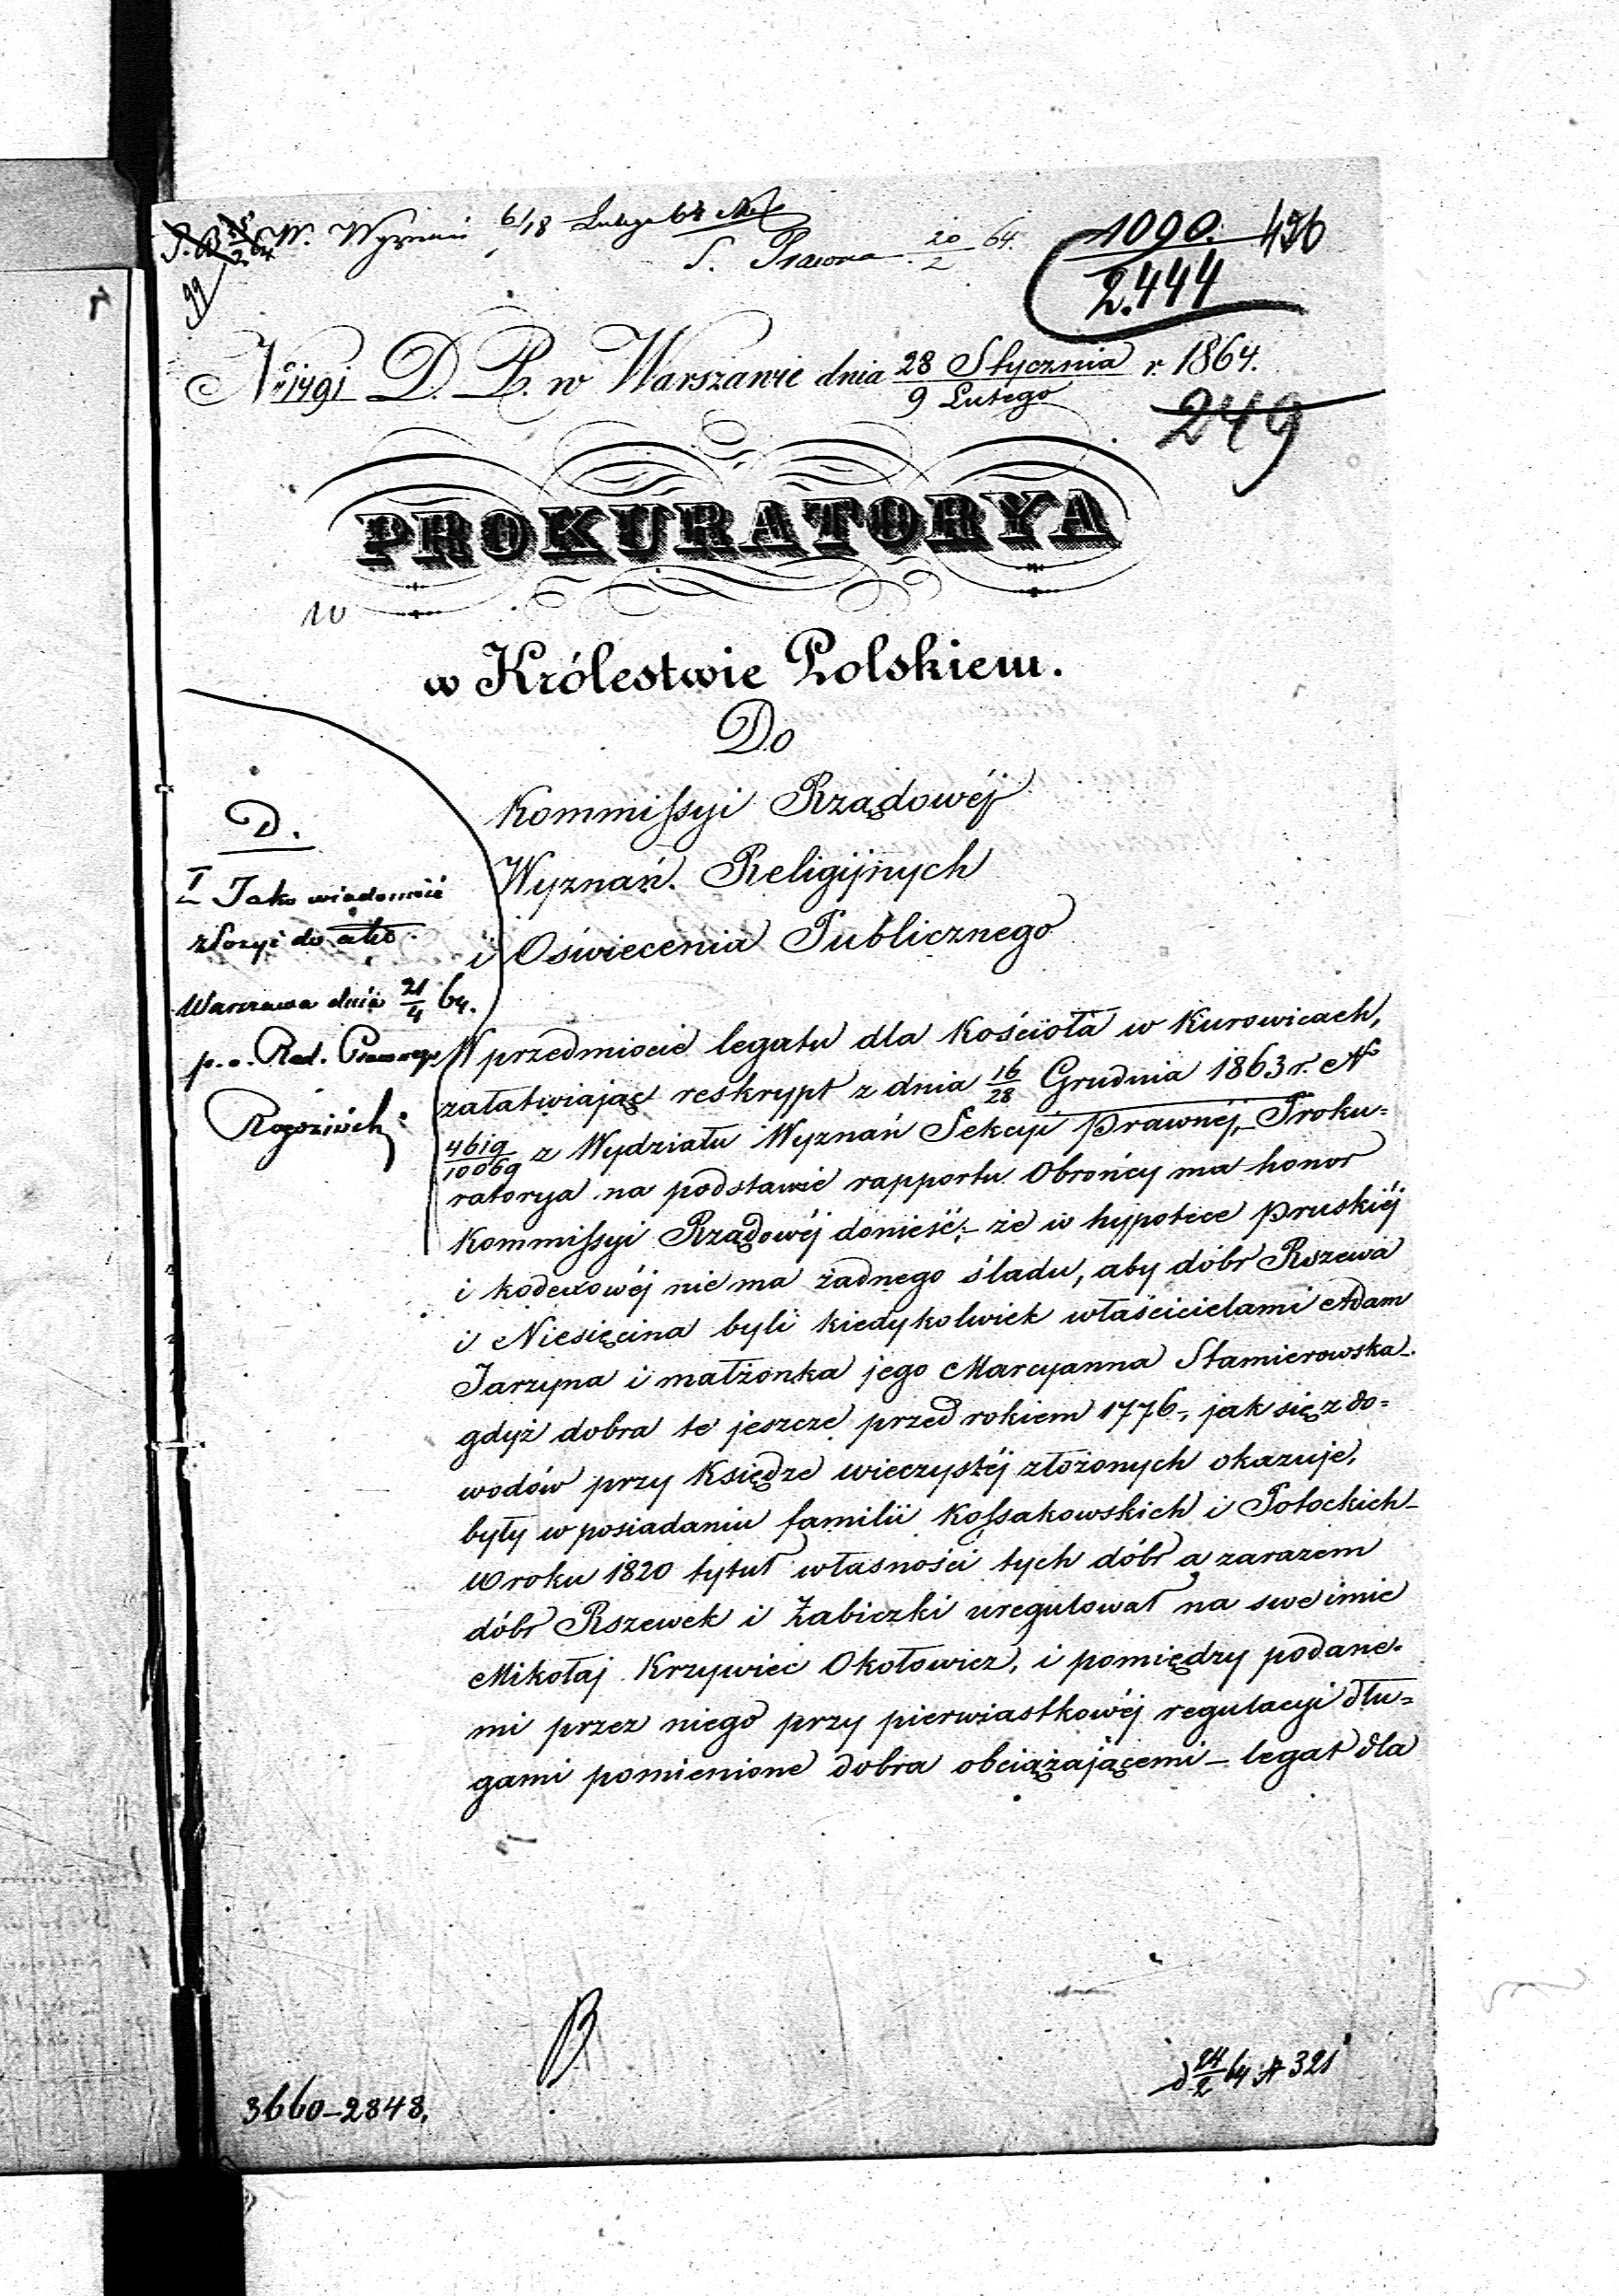 W. Wyznań 6/18 Lutego 64
S. Prawna 20/2 64.
1090. 426
2.444
99
No 1491 D. P. w Warszawie dnia 28 Stycznia / 9 Lutego r. 1864.
249
PROKURATORYA
w Królestwie Polskiem.
Do
Kommissyi Rządowéj
Wyznań Religijnych
i Oświecenia Publicznego
D.
I Jako wiadomość
złożyć do akt.
Warszawa dnia 21/4 64.
p. o. Rad. Prawnego
W przedmiocie legatu dla Kościoła w Kurowicach,
załatwiając reskrypt z dnia 16/28 Grudnia 1863 r. No
4619/10069 z Wydziału Wyznań Sekcyi Prawnéj, Proku=
ratorya na podstawie rapportu Obrońcy ma honor
Kommissyi Rządowéj donieść; - że w hypotece pruskiéj
i kodexowéj nie ma żadnego śladu, aby dóbr Rszewa
i Niesięcina byli kiedykolwiek właścicielami Adam
Jarzyna i małżonka jego Marcyanna Stamierowska -
gdyż dobra te jeszcze przed rokiem 1776, jak się z do=
wodów przy Księdze wieczystéj złożonych okazuje,
były w posiadaniu familii Kossakowskich i Potockich -
W roku 1820 tytuł własności tych dóbr a zarazem
dóbr Rszewek i Żabiczki uregulował na swe imie
Mikołaj Krzywiec Okołowicz, i pomiędzy podane-
mi przez niego przy pierwiastkowéj regulacyi dłu=
gami pomienione dobra obciążającemi - legat dla
3660-2848.
d 24/2 64 # 321